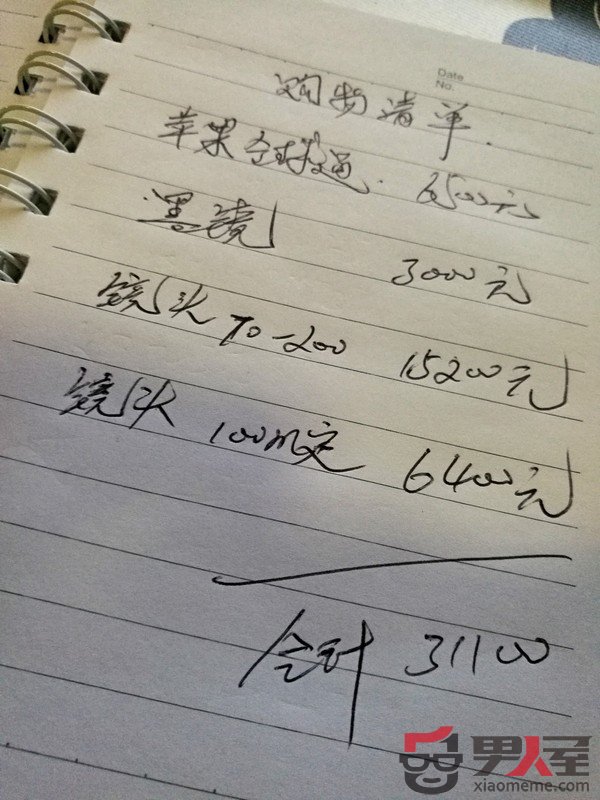 Date
No.
购物清单.
苹果全球通. 6500元
墨镜 3000元
镜头 70-200 15200元
镜头 100m定 6400元
合计 31100
男人屋
xiaomeme.com